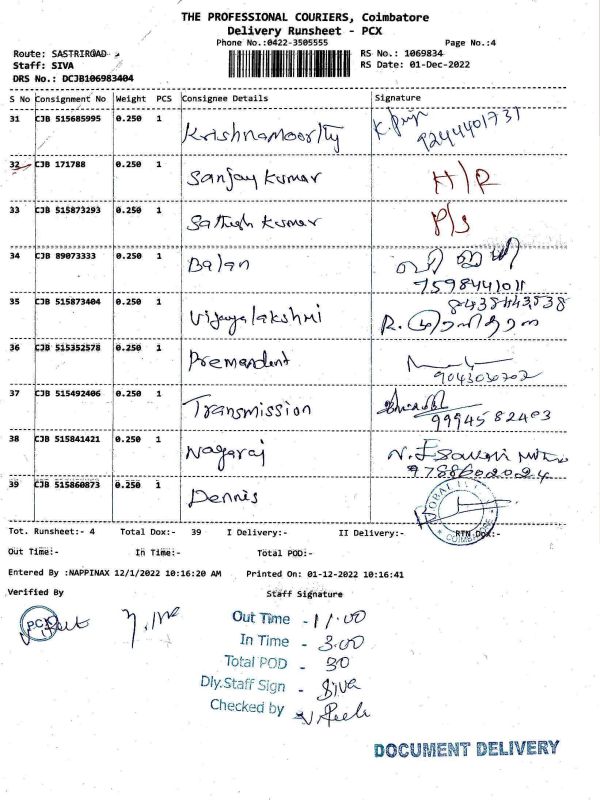 THE PROFESSIONAL COURIERS, Coimbatore
Delivery Runsheet - PCX
Phone No.:0422-3505555 Page No.:4
Route: SASTRIROAD RS No.: 1069834
Staff: SIVA RS Date: 01-Dec-2022
DRS No.: DCJB106983404
S No Consignment No Weight PCS Consignee Details Signature
31 CJB 515685995 0.250 1 Krishnamoorlty 9244401731
32 CJB 171788 0.250 1 Sanjay Kumar H/R
33 CJB 515873293 0.250 1 Sathish Kumar P/S
34 CJB 89073333 0.250 1 Balan
7598441011
35 CJB 515873404 0.250 1 Vijayalakshmi
36 CJB 515352578 0.250 1 Premandent
9043030702
37 CJB 515492406 0.250 1 Transmission
9994582403
38 CJB 515841421 0.250 1 Nagaraj
9788602024
39 CJB 515860873 0.250 1 Dennis
Tot. Runsheet:- 4 Total Dox:- 39 I Delivery:- II Delivery:- RTN Dox:-
Out Time:- In Time:- Total POD:-
Entered By :NAPPINAX 12/1/2022 10:16:20 AM Printed On: 01-12-2022 10:16:41
Verified By Staff Signature
PCX
Out Time - 11.00
In Time - 3.00
Total POD - 30
Dly.Staff Sign - Siva
Checked by -
DOCUMENT DELIVERY